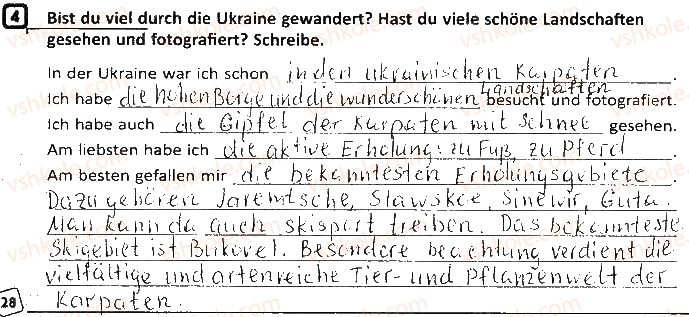 4 Bist du viel durch die Ukraine gewandert? Hast du viele schöne Landschaften
gesehen und fotografiert? Schreibe.
In der Ukraine war ich schon in den ukrainischen Karpaten.
Ich habe die hohen Berge und die wunderschönen Landschaften besucht und fotografiert.
Ich habe auch die Gipfel der Karpaten mit Schnee gesehen.
Am liebsten habe ich die aktive Erholung: zu Fuß, zu Pferd.
Am besten gefallen mir die bekanntesten Erholungsgebiete
Dazu gehören Jaremtsche, Slawske, Sinewir, Guta.
Man kann da auch skisport treiben. Das bekannteste
Skigebiet ist Bukovel. Besondere beachtung verdient die
vielfältige und artenreiche Tier- und Pflanzenwelt der
Karpaten.
28